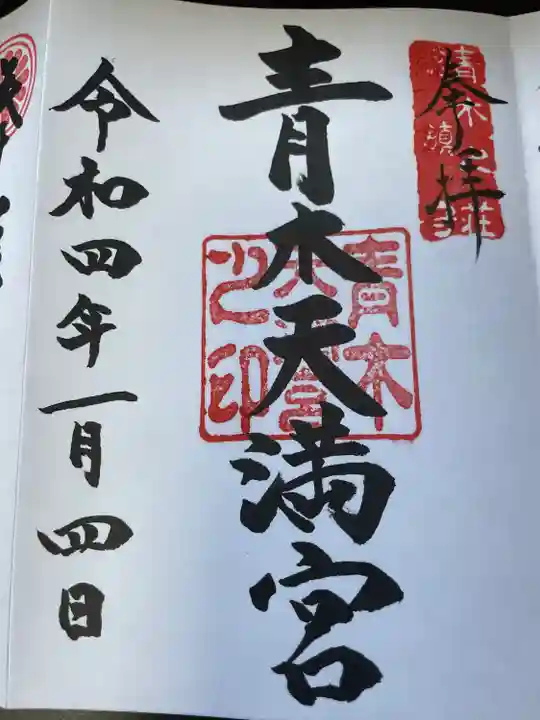 奉拝
青木天満宮
青木天満宮之印
令和四年一月四日